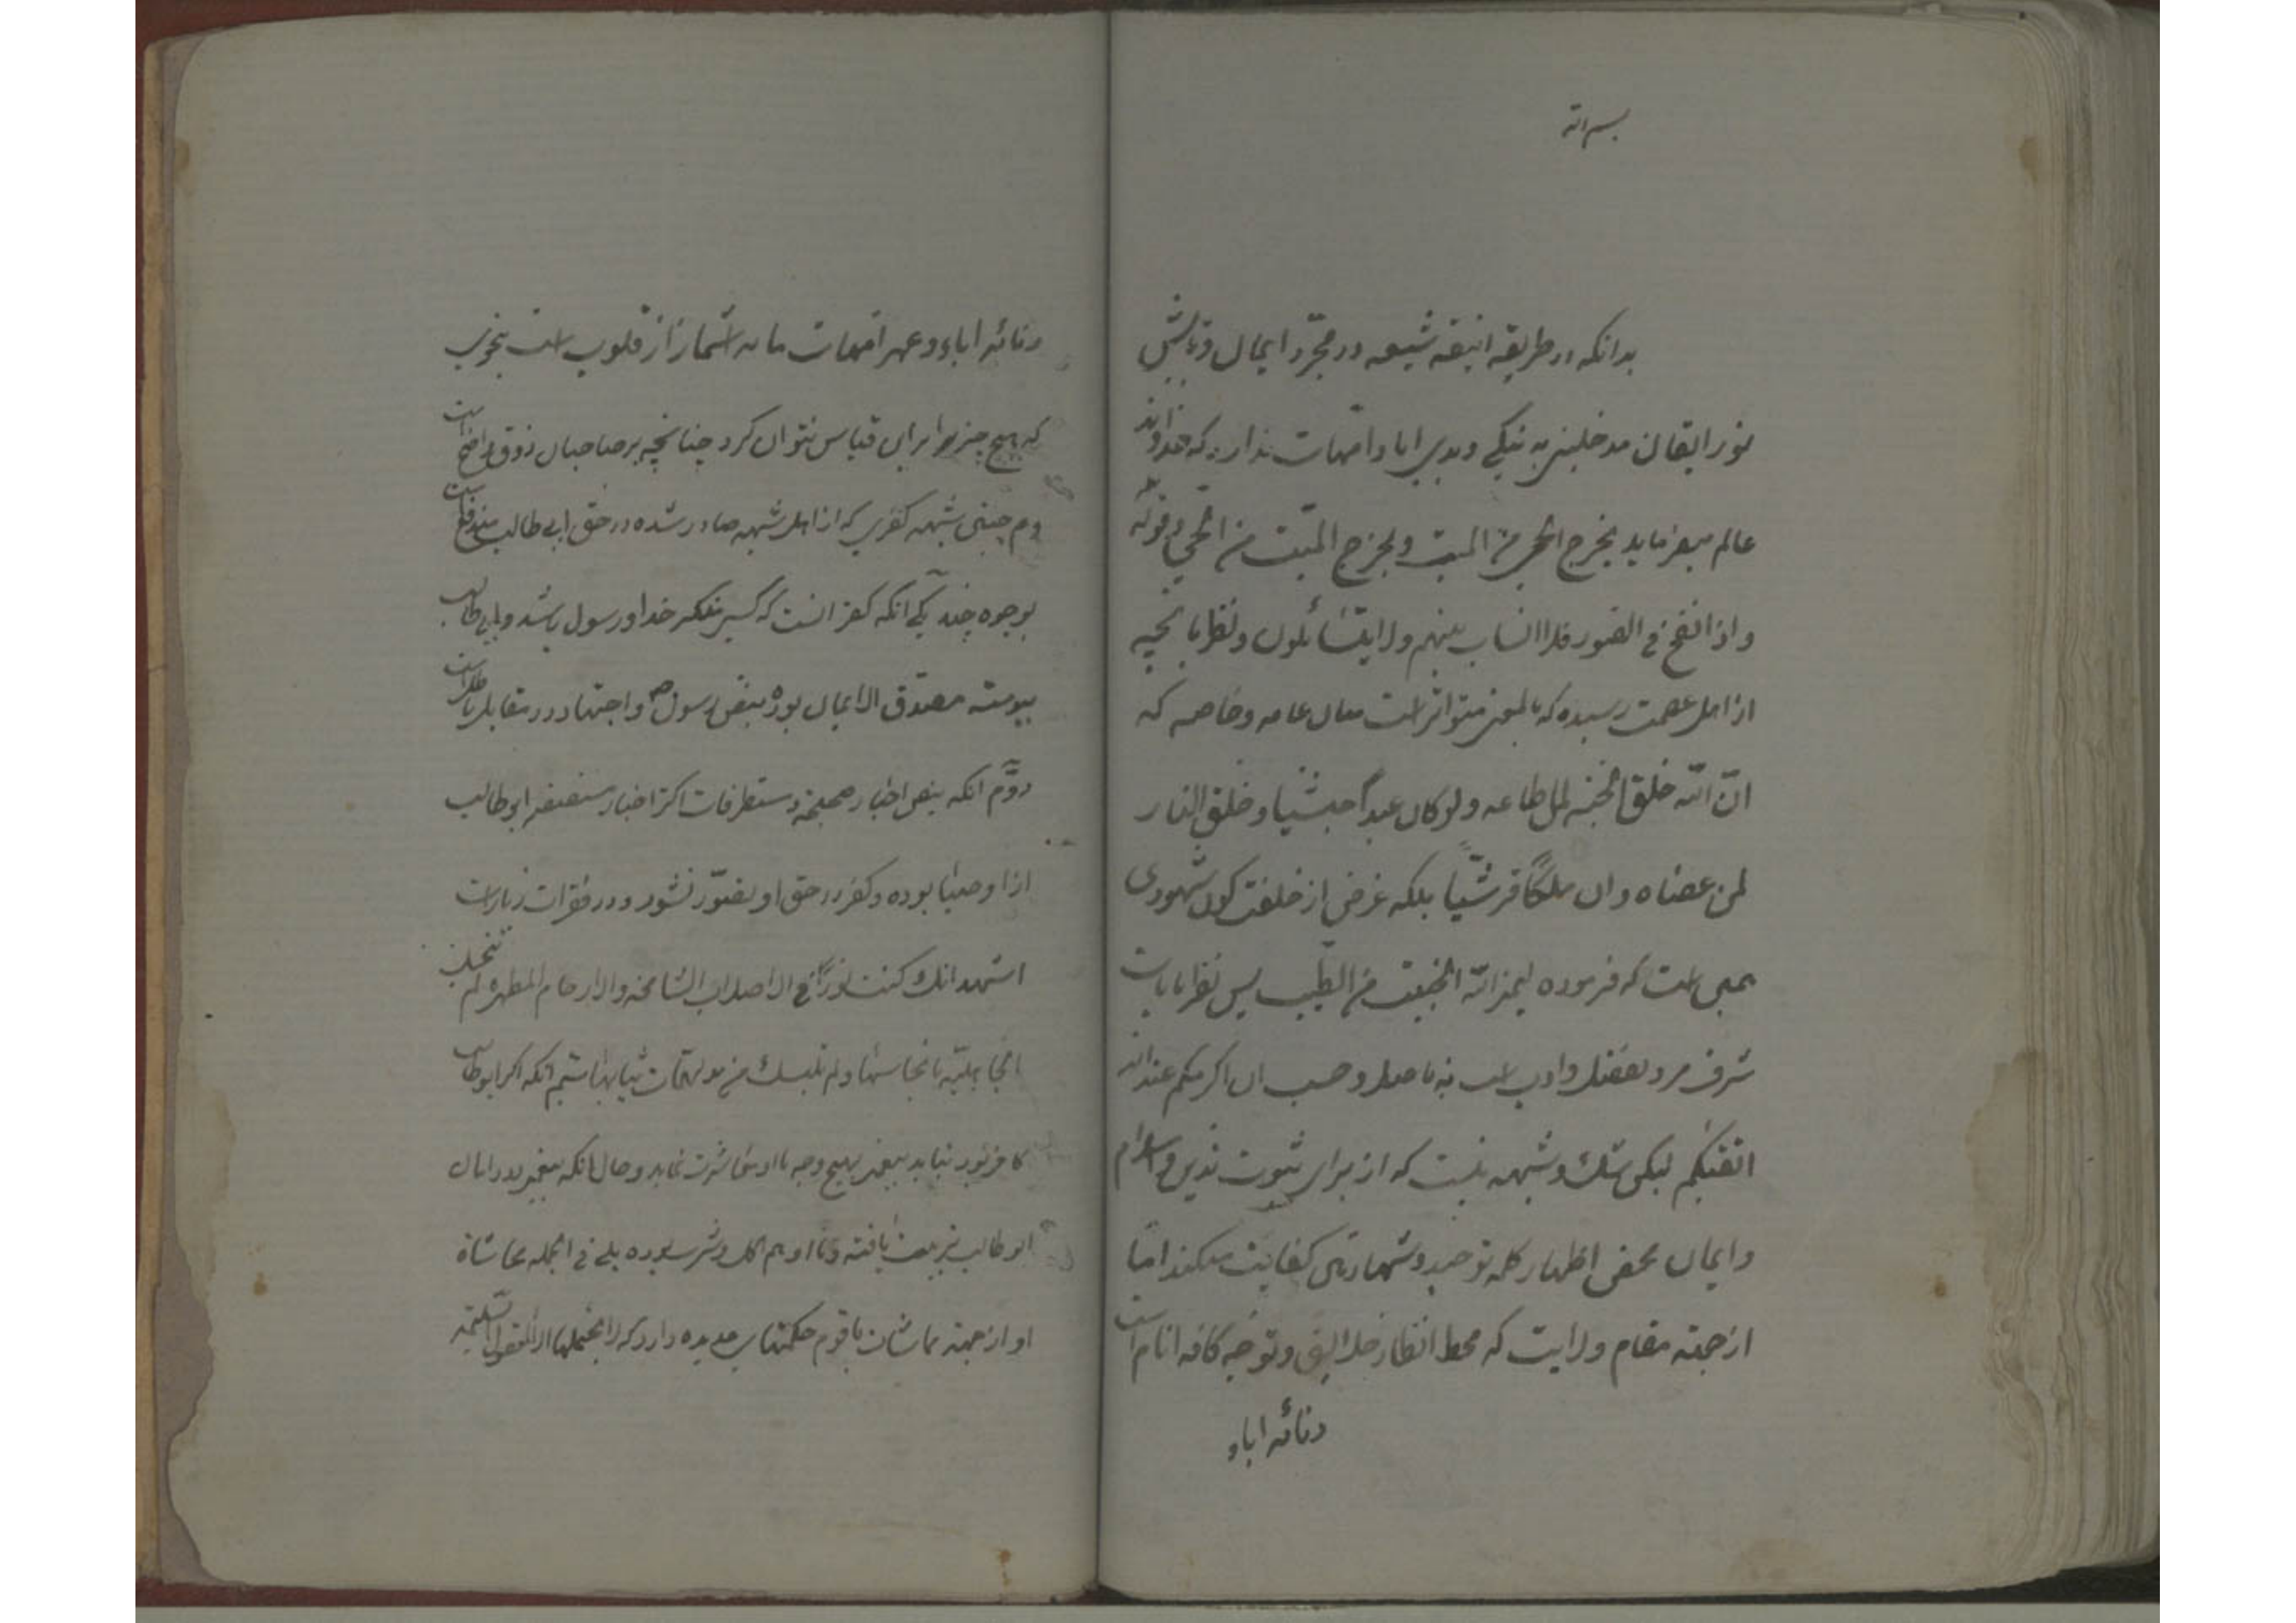 بسم الله
بدانکه در طریقه انیقه شیعه در مجرد ایمان و تابش
نور ایقان مدخلیتی به نیکی و بدی ابا و امهات ندارد که خداوند
عالم میفرماید یخرج الحی من المیت ویخرج المیت من الحی وقوله
واذا نفخ فی الصور فلا انساب بینهم ولا یتسائلون ونظر بانچه
از اهل عصمت رسیده که بالمعنی متواتر است میان عامه و خاصه که
ان الله خلق الجنه لمن اطاعه ولو کان عبداً حبشیا وخلق النار
لمن عصاه وان ملکاً قرشیاً بلکه غرض از خلقت کون شهودی
همین است که فرموده لیمیز الله الخبیث من الطیب پس نظر بایات
شرف مرد بفضل وادب است نه باصل وحسب ان اکرمکم عند الله
اتقیکم لیکن شک و شبهه نیست که از برای ثبوت تدین و اسلام
وایمان محض اظهار کلمه توحید و شهادتین کفایت میکند اما
از جهته مقام ولایت که محط انظار خلایق و توجه کافه انام است
دنائه اباء
دنائه اباء و عهر امهات مایه اشمازاز قلوب است بنحوی
که هیچ چیز را بر این قیاس نتوان کرد چنانچه بر صاحبان ذوق واضح است
و هم چنین شبهه کفری که از اهل شبهه صادر شده در حق ابی طالب مندفع است
بوجوه چند یکی آنکه کفر انست که کسی منکر خدا و رسول باشد و ابی طالب
پیوسته مصدق الایمان بوده بنص رسول ص و اجتهاد در مقابل باطل است
دوم آنکه بنص اخبار صحیحه و مستطرفات اکثر اخبار مستفیضه ابو طالب
از اوصیا بوده و کفر در حق او تصور نشود و در فقرات زیارت
اشهد انک کنت نوراً فی الاصلاب الشامخه والارحام المطهره لم تنجسک
الجاهلیه بانجاسها ولم تلبسک من مدلهمات ثیابها سیم آنکه اگر ابو طالب
کافر بود نباید پیغمبر بهیچ وجه با او معاشرت نماید و حال آنکه پیغمبر در دامان
ابو طالب تربیت یافته و با او هم اکل و شرب بوده بلی فی الجمله مماشاة
او از جهته مماشات با قوم حکمتهای عدیده دارد که لا یحتملها الا العقول السلیمه